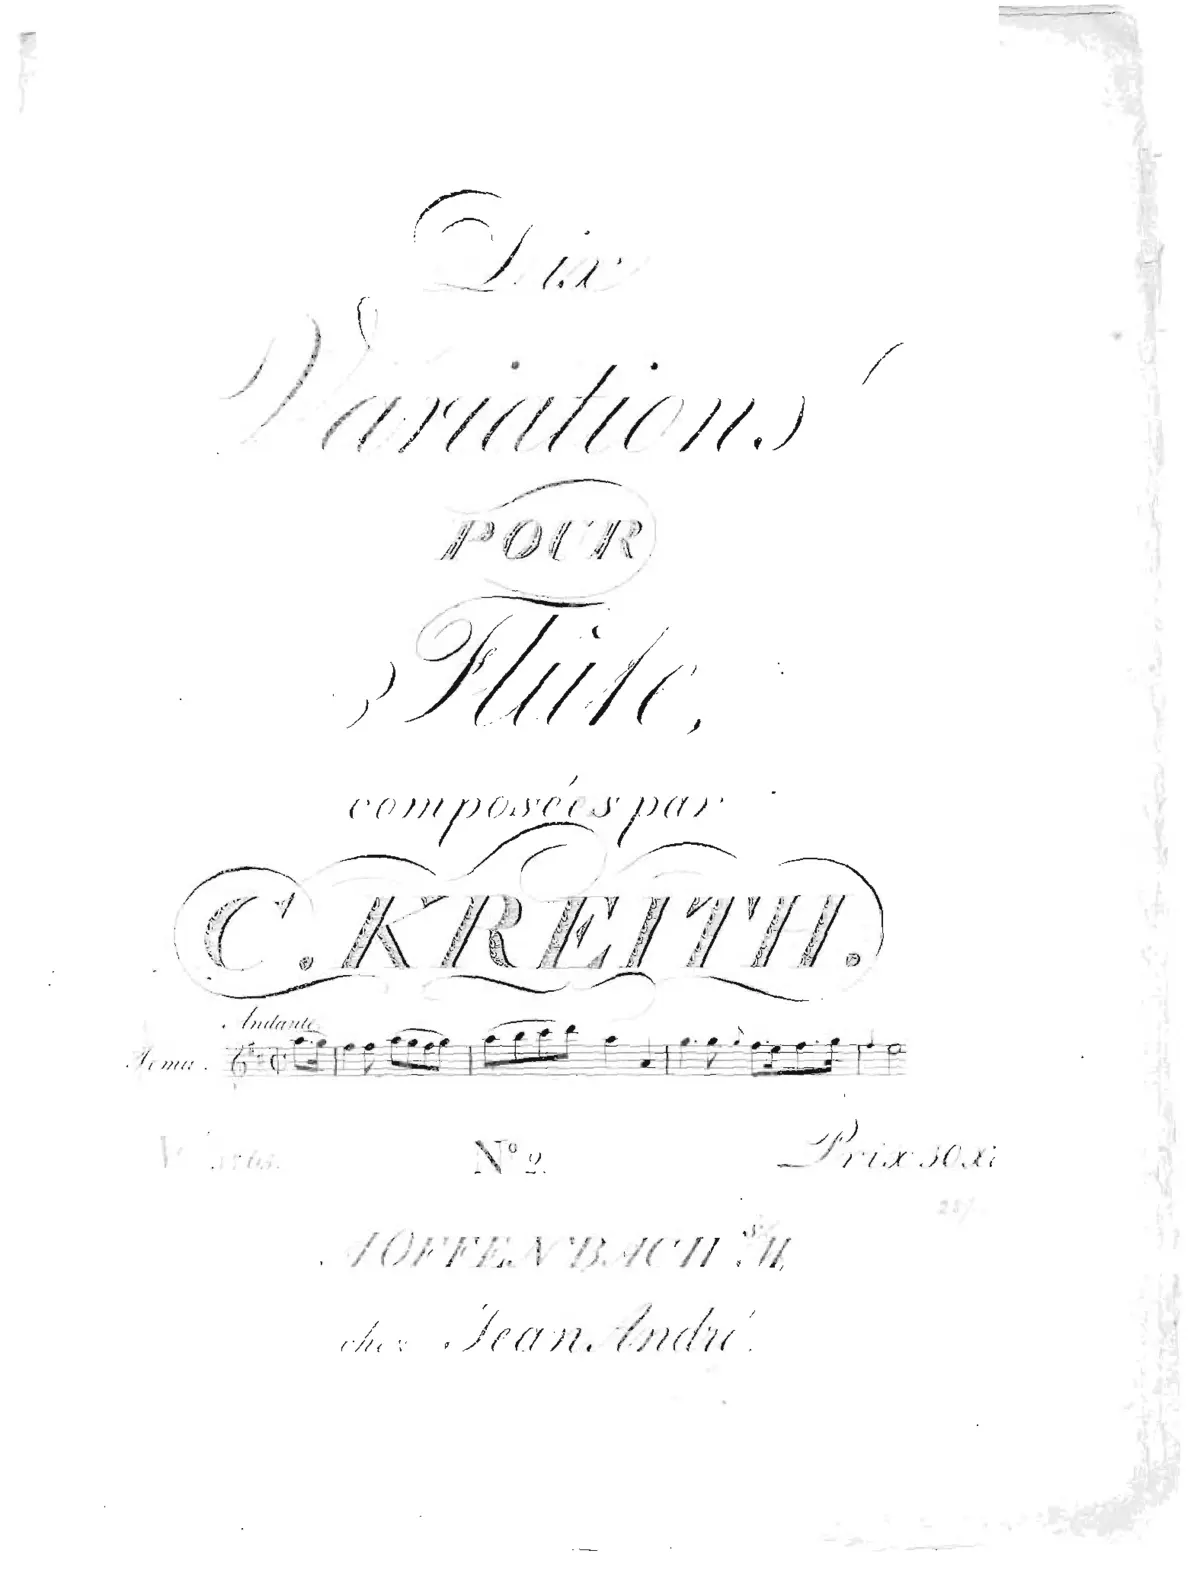 Dix
Variations
POUR
Flûte,
composées par
C. KREITH.
Andante
Tema.
Nº 2.
Prix 30 Xr
A OFFENBACH s/M,
chez Jean André.